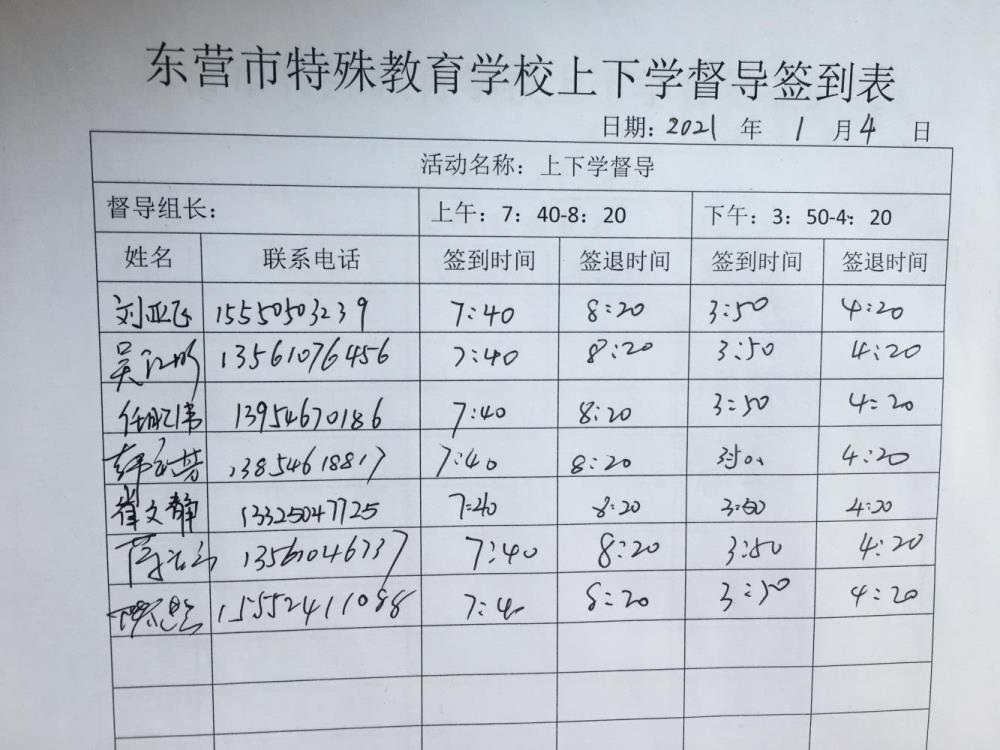 东营市特殊教育学校上下学督导签到表
日期：2021 年 1 月 4 日
活动名称：上下学督导
督导组长： 上午：7：40-8：20 下午：3：50-4：20
姓名 联系电话 签到时间 签退时间 签到时间 签退时间
刘亚飞 15550503239 7:40 8:20 3:50 4:20
吴 13561076456 7:40 8:20 3:50 4:20
任 伟 13954670186 7:40 8:20 3:50 4:20
韩 芳 13854618817 7:40 8:20 3:50 4:20
崔文静 13325047725 7:40 8:20 3:50 4:20
13561046737 7:40 8:20 3:50 4:20
15552411088 7:40 8:20 3:50 4:20